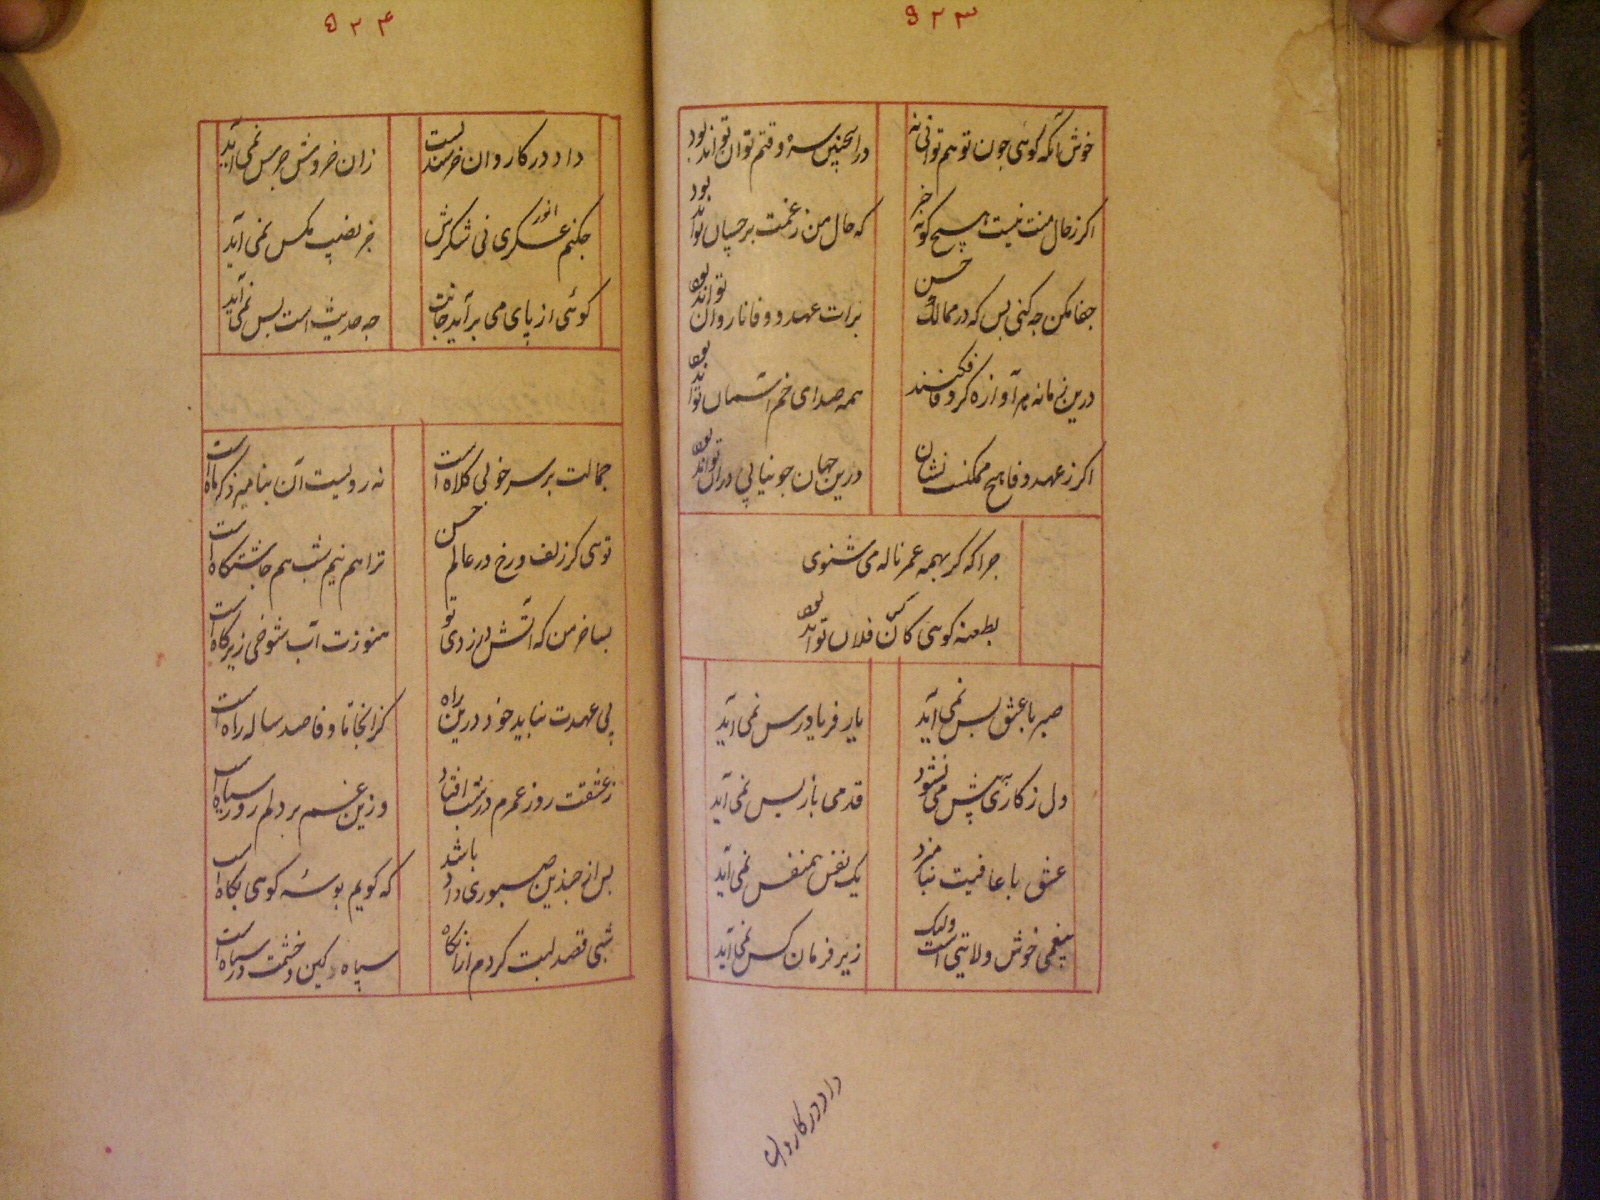 ۵۲۳
خوش آنکه کوئی جون تو هم توانی نه
در اینچنین سره وقتم توان تواند بود
اکر ز حال منت نیست هیچ کونه خبر
که حال من ز غمت بر چسان تواند بود
جفا مکن جه کنی بس که در ممالک حسن
برات عهد و وفا ناروان تواند بود
درین زمانه هر آوازه کز وفا فکنند
همه صدای خم آسمان تواند بود
اکر ز عهد و وفا هیچ ممکنست نشان
درین جهان جو نیابی در آن تواند بود
جرا که کر بهمه عمر ناله می شنوی
بطعنه کوئی کاین فلان تواند بود
صبر با عشق بس نمی آید
یار فریادرس نمی آید
دل ز کاری که پیش می نشود
قدمی باز پس نمی آید
عشق با عافیت نیامیزد
یک نفس همنفس نمی آید
بیغمی خوش ولایتی است ولیک
زیر فرمان کس نمی آید
داد در کاروان
۵۲۴
داد در کاروان خرسندیست
زان خروش جرس نمی آید
جکنم عسکری نی شکرش انور
جز نصیب مکس نمی آید
کوئی از پای می برآید جانت
جه حدیث است بس نمی آید
جمالت بر سر خوبی کلاه است
نه رویست آن بنامیزد که ماه است
توئی کز زلف و رخ در عالم حسن
ترا هم نیم شب هم چاشتگاه است
بسا خرمن که آتش در زدی تو
هنوزت آب شوخی زیر کاه است
پی عهدت نیاید خود درین راه
کز انجا تا وفا صد ساله راه است
ز عشقت روز عمرم در شب افتاد
وزین غم بر دلم روز سیاه است
پس از چندین صبوری داد باشد
که کویم بوسه کوئی پکاه است
شبی قصد لبت کردم از آنکاه
سپاه کین و خشمت در سپاه است